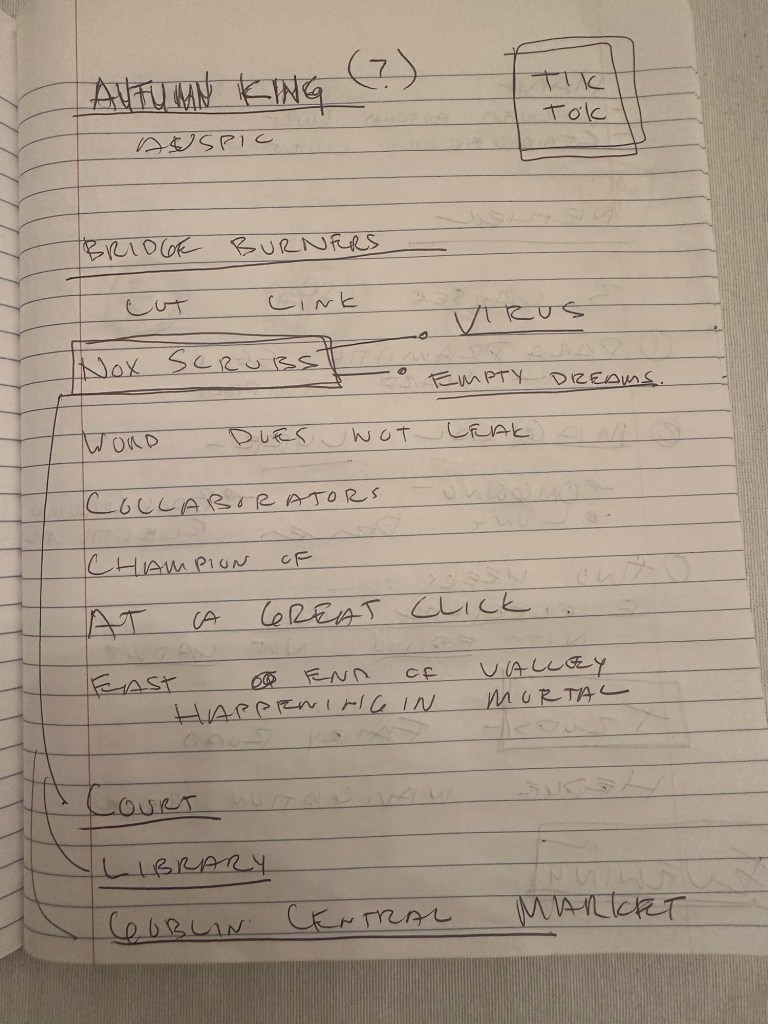 AUTUMN KING (?)
TIK
TOK
AUSPIC
BRIDGE BURNERS
CUT LINK
VIRUS
NOX SCRUBS
EMPTY DREAMS.
WORD DOES NOT LEAK
COLLABORATORS
CHAMPION OF
AT A GREAT CLICK.
EAST END OF VALLEY
HAPPENING IN MORTAL
COURT
LIBRARY
GOBLIN CENTRAL MARKET